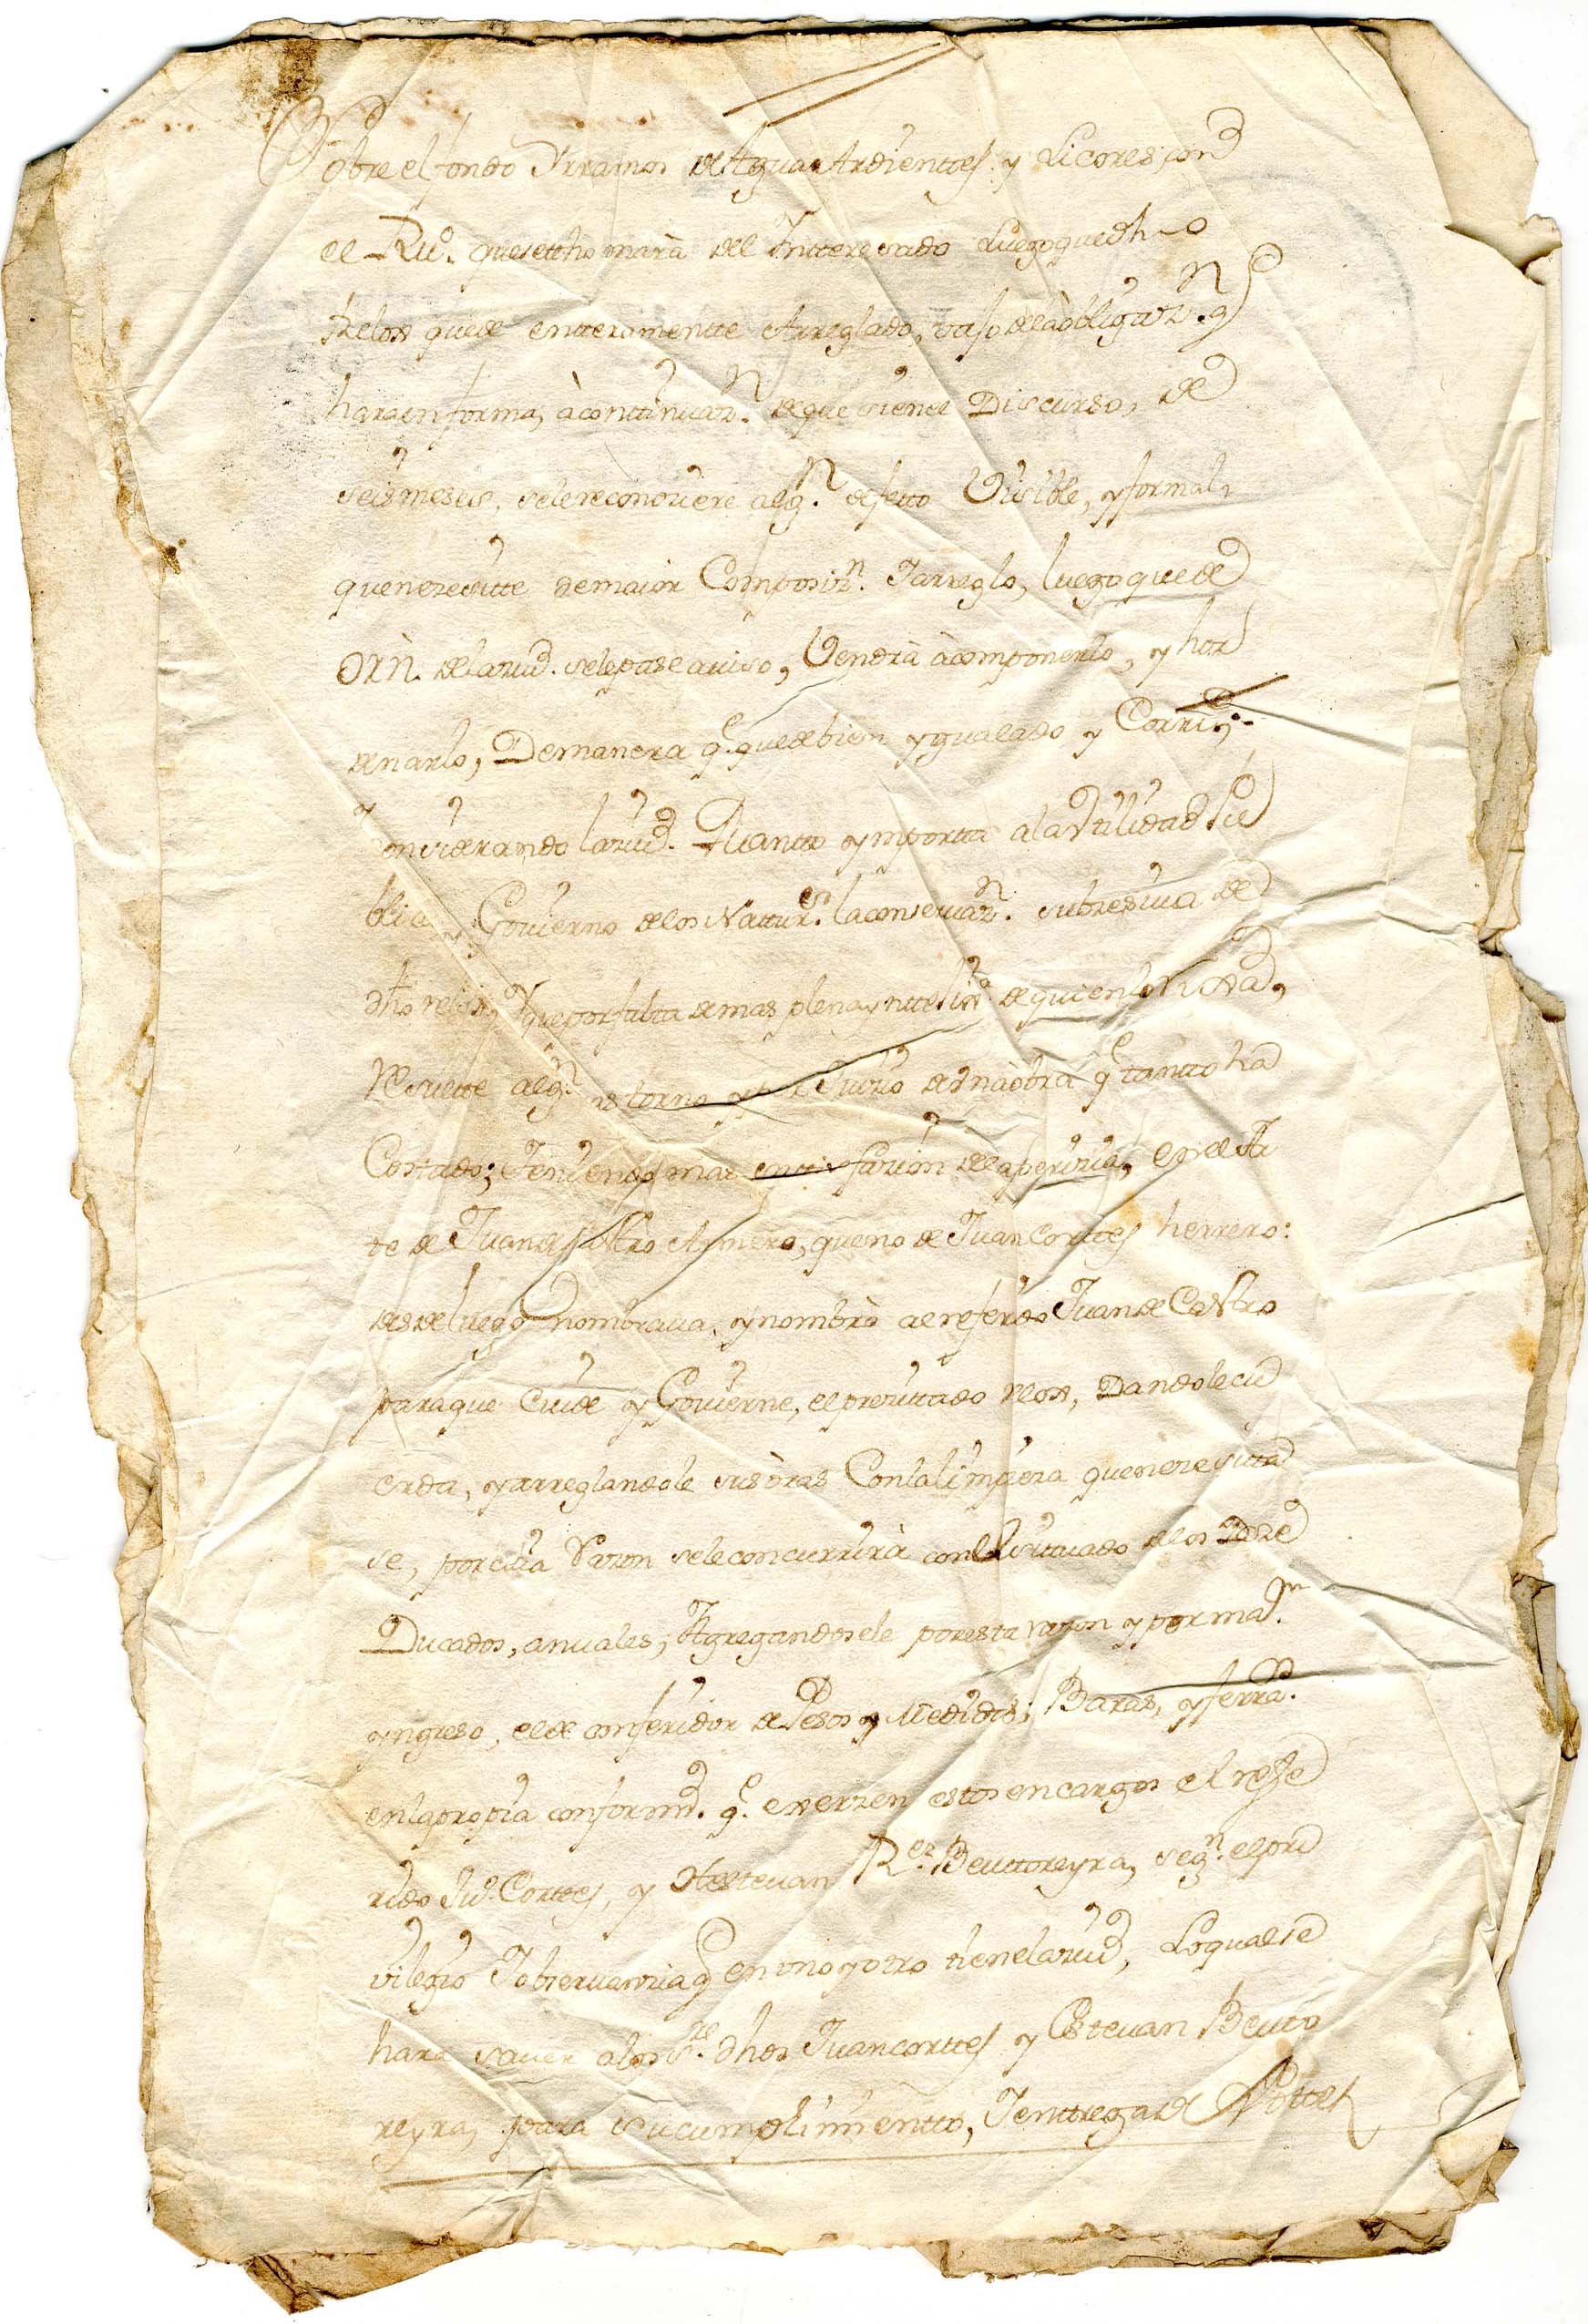 Sobre el fondo Y rramos de Agua Ardienttes y Licores, con
el Rivo. que se tthomará del Intteresado Luego que dho
Relox quede entteramentte Arreglado, vajo de la òbligazn. qe
hara en forma, à conttinuazn. de que si en el Discurso, de
seis meses, se le reconociere algn. defetto Visible, y formal,
que nezesitte de maior Composizn. Y arreglo, luego que de
orn. de la ziud. se le pase auiso, Vendrà à componerlo, y hor
denarlo, De manera qe. quede bien ygualado y Corrte;
Y considerando la ziud. Quantto ymportta a la Vtilidad Pu
blica y Govierno de los Natturs. la conseruazn. subzesiua de
dho relox, Y que por falta de mas plena ynttelixa. de quien lo rixa,
Resultte algn. trastorno y perjuizio de vna òbra qe. tantto ha
Costado; Teniendo mas sattisfazion de la perizia, en el Ar
te de Juan de Castro Armero, que no de Juan Corttes herrero:
desde luego nombraua, y nombrò al referido Juan de Castro
para que Cuide y Govierne, el prezittado relox, Dandole cu
erda, y arreglandole sus òras Con la limpieza que nezesitta
se, por cuia Razon se le concurrirà con el situado de los Doze
Ducados, anuales; Agregandosele por esta razon y por maor.
yngreso, el de conferidor de Pesos y Medidas, Baras, y ferra.
en la propia conformd. qe. exerzen estos encargos el refe
rido Jun. Corttes, y Hestevan Rez. Beuttoreyra, segn. el pri
vilegio Y obseruanzia qe en vno y otro tiene la ziud, Lo qual se
hara sauer a los Sres. dhos Juan corttes y Estevan Beuto
reyra, para su cumplimientto, Y enttrega de Pottes